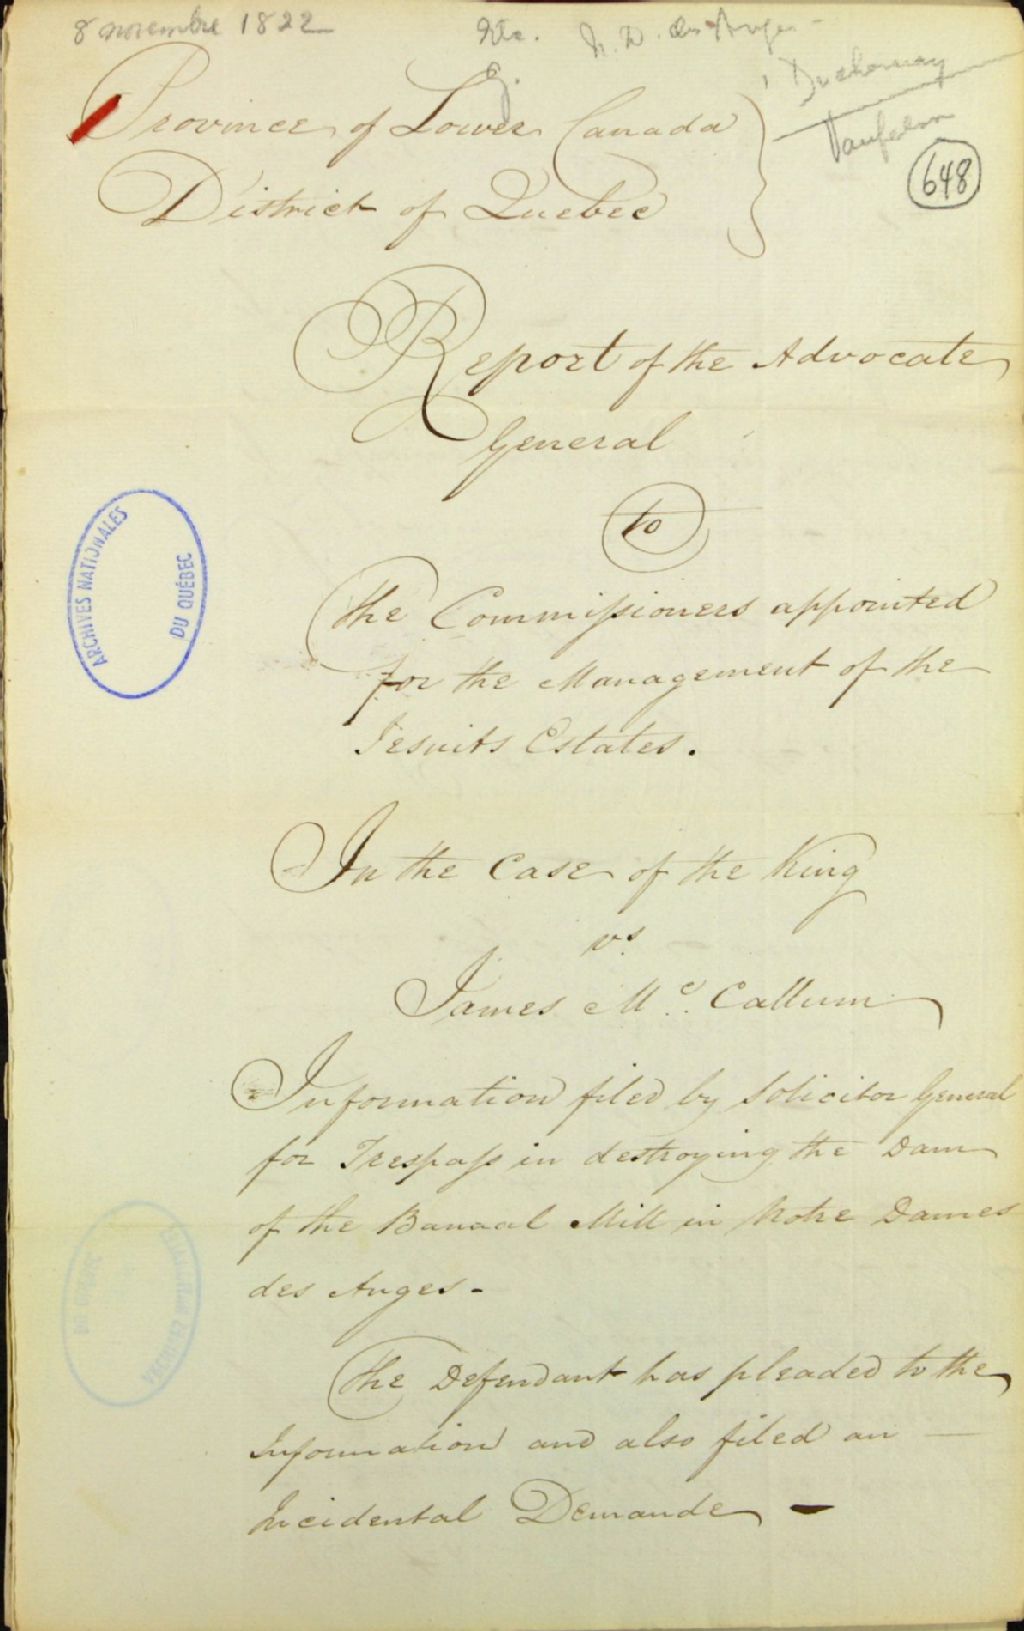 8 novembre 1822
N. D. des Anges
Duchesnay
648
Province of Lower Canada
District of Quebec
Report of the Advocate
General
to
The Commissioners appointed
for the Management of the
Jesuits Estates.
ARCHIVES NATIONALES
DU QUÉBEC
In the Case of the King
vs
James Mc. Callum
Information filed by Solicitor General
for Trespass in destroying the Dam
of the Banaal Mill in Notre Dames
des Anges.
ARCHIVES NATIONALES
DU QUÉBEC
The Defendant has pleaded to the
Information and also filed an
Incidental Demande